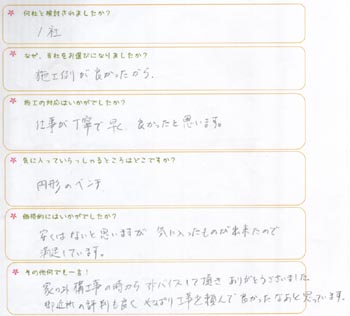 何社と検討されましたか?
1社
なぜ、当社をお選びになりましたか?
施工例が良かったから.
施工の対応はいかがでしたか?
仕事が丁寧で早く、良かったと思います。
気に入っていらっしゃるところはどこですか?
円形のベンチ
価格的にはいかがでしたか?
安くはないと思いますが 気に入ったものが出来たので
満足しています。
その他何でも一言!
家の外構工事の時からアドバイスして頂き ありがとうございました
御近所の評判も良く 工事を頼んで良かったなあと思っています。